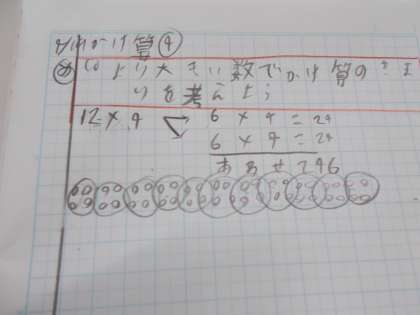 かけ算④
め 10より大きい数でかけ算のきまりを考えよう
12×4
6×4=24
6×4=24
あわせて46